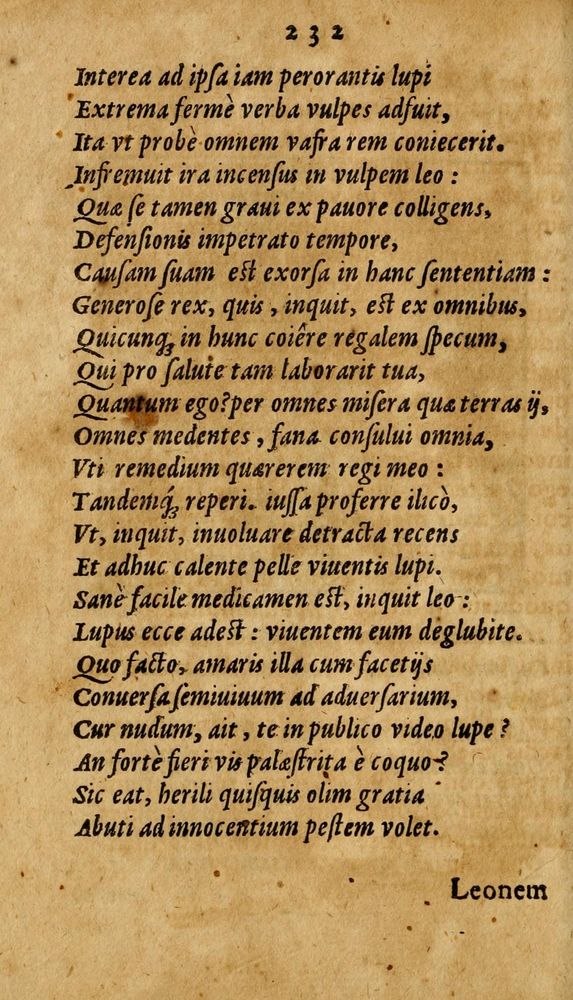 232
Interea ad ipſa iam perorantis lupi
Extrema fermè verba vulpes adfuit,
Ita vt probè omnem vafra rem coniecerit.
Infremuit ira incenſus in vulpem leo :
Quæ ſe tamen graui ex pauore colligens,
Defenſionis impetrato tempore,
Cauſam ſuam est exorſa in hanc ſententiam :
Generoſe rex, quis, inquit, est ex omnibus,
Quicunq́; in hunc coiêre regalem ſpecum,
Qui pro ſalute tam laborarit tua,
Quantum ego? per omnes miſera quæ terras ij,
Omnes medentes, fana conſului omnia,
Vti remedium quærerem regi meo :
Tandemq́; reperi. iuſſa proferre ilicò,
Vt, inquit, inuoluare detracta recens
Et adhuc calente pelle viuentis lupi.
Sanè facile medicamen est, inquit leo :
Lupus ecce adest : viuentem eum deglubite.
Quo facto, amaris illa cum facetijs
Conuerſa ſemiuiuum ad aduerſarium,
Cur nudum, ait, te in publico video lupe ?
An fortè fieri vis palæſtrita è coquo ?
Sic eat, herili quiſquis olim gratia
Abuti ad innocentium peſtem volet.
Leonem